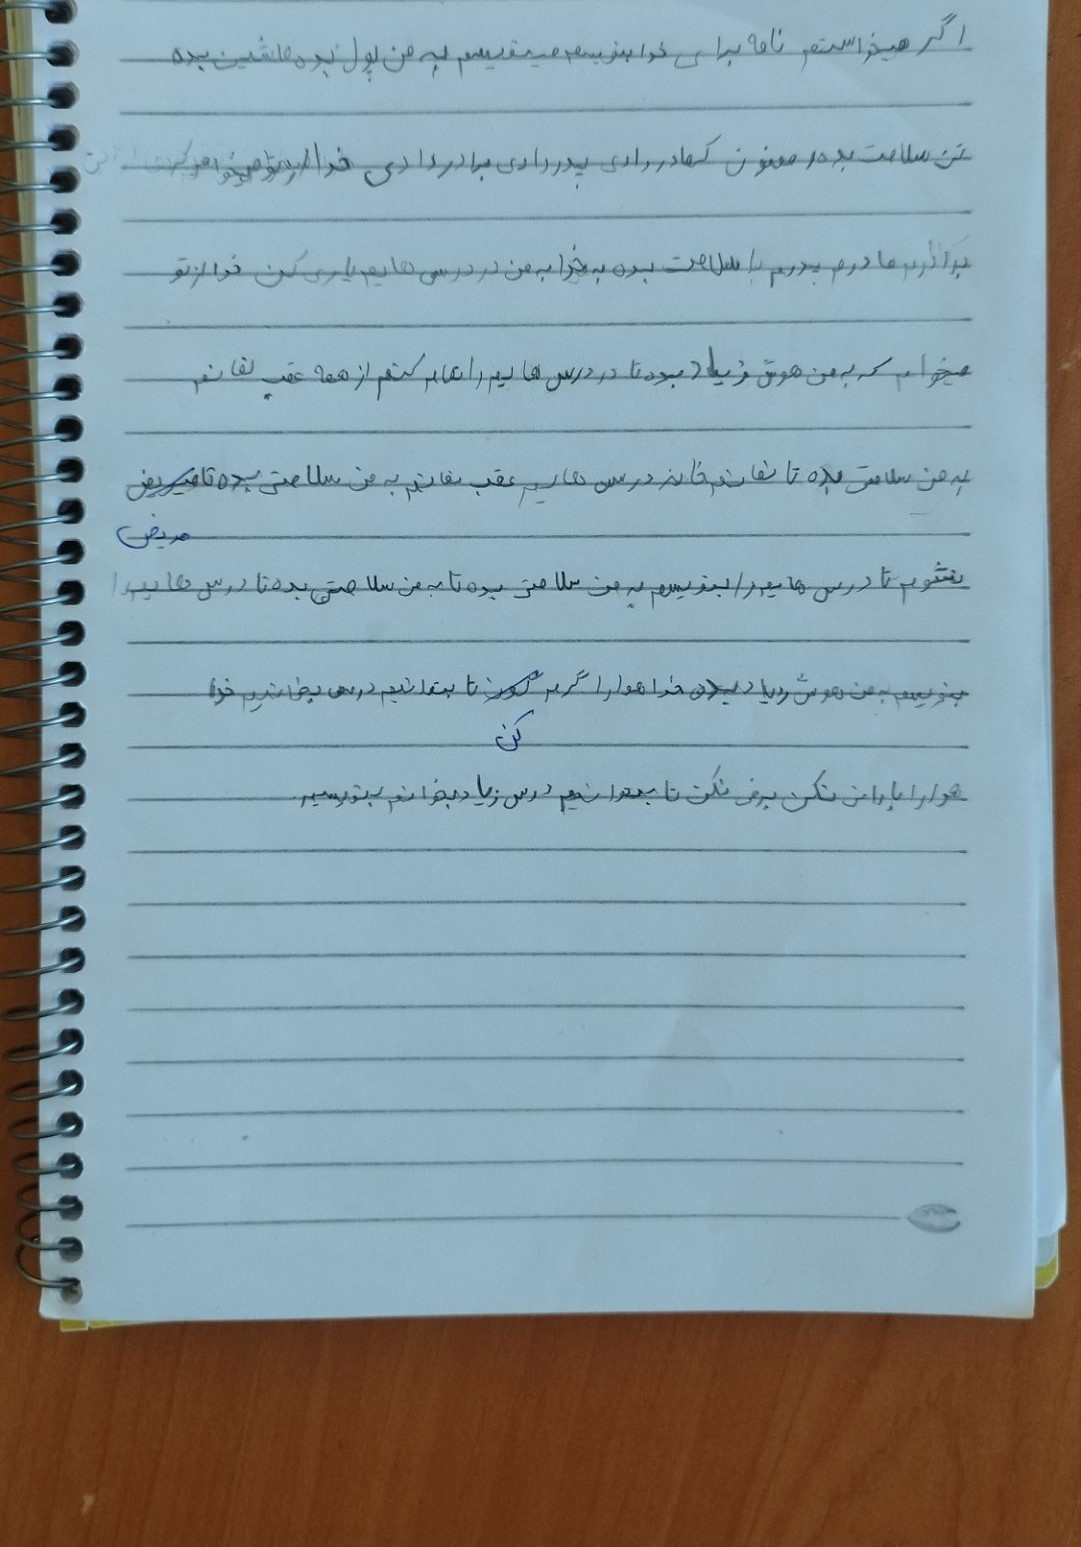 اگر میخواستم نامه برای خدا بنویسم مینویسم به من پول بده ماشین بده
تن سلامت بده ممنون که مادر دادی پدر دادی برادر دادی خدا از تو میخواهم که
برادرم مادرم پدرم را سلامت بده به خدا به من در درس هایم یاری کن خدا از تو
میخوام که به من هوش زیاد بده تا در درس هایم را تمام کنم از همه عقب نمانم
به من سلامتی بده تا نمانم درس هایم عقب نمانم به من سلامتی بده تا میریض
مریض
نشوم تا درس هایم را بنویسم به من سلامتی بده تا به من سلامتی بده تا درس هایم را
بنویسم به من هوش زیاد بده خدا هوا را گرم تا بتوانیم درس بخوانیم خدا
کن
هوا را باران نکن برف نکن تا بتوانیم درس زیاد بخوانم بنویسیم.